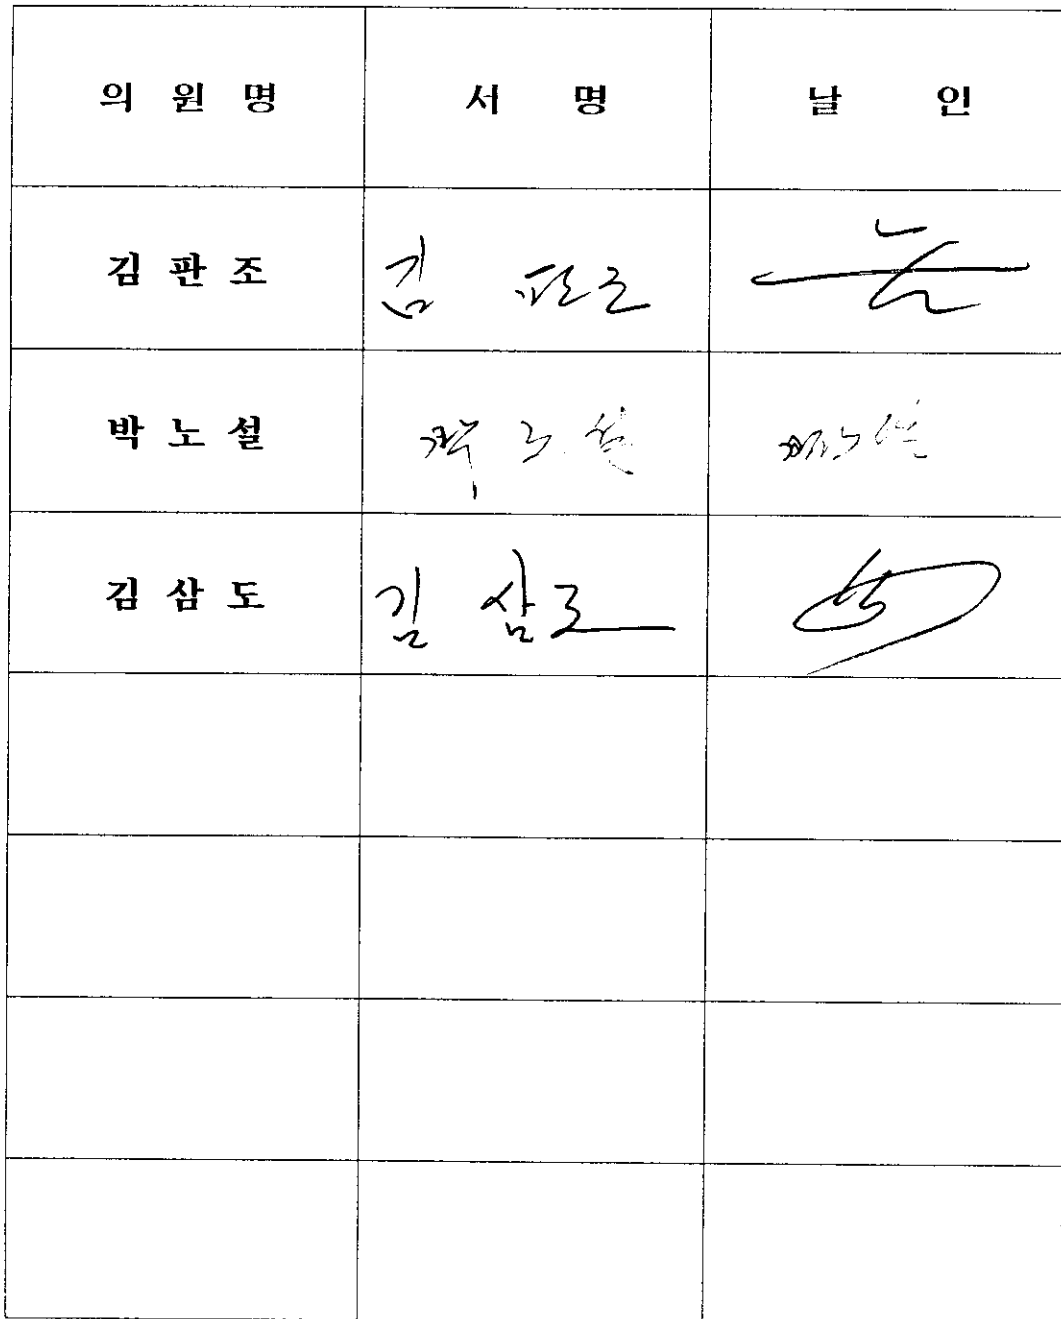 의 원 명 서 명 날 인
김 판 조 김 판조
박 노 설 박 노 설
김 삼 도 김 삼도